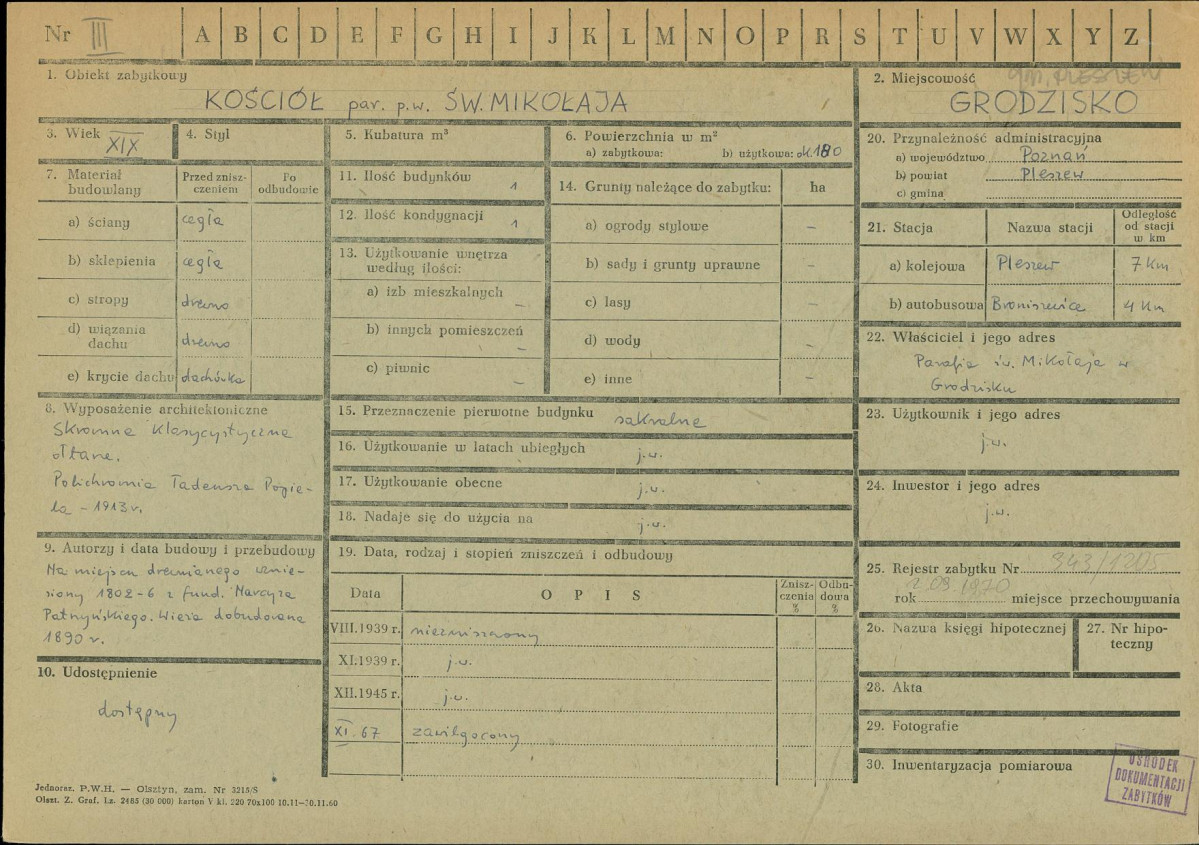 Nr III A B C D E F G H I J K L M N O P R S T U V W X Y Z
1. Obiekt zabytkowy
KOŚCIÓŁ par. p.w. ŚW. MIKOŁAJA
2. Miejscowość gm. PLESZEW
GRODZISKO
3. Wiek XIX
4. Styl
5. Kubatura m³
6. Powierzchnia w m²
a) zabytkowa: b) użytkowa: ok. 180
7. Materiał budowlany
Przed zniszczeniem
Po odbudowie
a) ściany cegła
b) sklepienia cegła
c) stropy drewno
d) wiązania dachu drewno
e) krycie dachu dachówka
8. Wyposażenie architektoniczne
Skromne klasycystyczne
ołtarze.
Polichromia Tadeusza Popie-
la – 1913 r.
9. Autorzy i data budowy i przebudowy
Na miejscu drewnianego wznie-
siony 1802-6 z fund. Marcyza
Wieża dobudowana
1890 r.
10. Udostępnienie
dostępny
11. Ilość budynków 1
12. Ilość kondygnacji 1
13. Użytkowanie wnętrza
według ilości:
a) izb mieszkalnych –
b) innych pomieszczeń –
c) piwnic –
14. Grunty należące do zabytku: ha
a) ogrody stylowe –
b) sady i grunty uprawne –
c) lasy –
d) wody –
e) inne –
15. Przeznaczenie pierwotne budynku sakralne
16. Użytkowanie w latach ubiegłych j.w.
17. Użytkowanie obecne j.w.
18. Nadaje się do użycia na j.w.
19. Data, rodzaj i stopień zniszczeń i odbudowy
Data OPIS Zniszczenia % Odbudowa %
VIII.1939 r. niezniszczony
XI.1939 r. j.w.
XII.1945 r. j.w.
XI.67 zawilgocony
20. Przynależność administracyjna
a) województwo Poznań
b) powiat Pleszew
c) gmina
21. Stacja Nazwa stacji Odległość od stacji w km
a) kolejowa Pleszew 7 km
b) autobusowa Broniszewice 4 km
22. Właściciel i jego adres
Parafia św. Mikołaja w
Grodzisku
23. Użytkownik i jego adres
j.w.
24. Inwestor i jego adres
j.w.
25. Rejestr zabytku Nr 943/1205
rok 2 09 1970 miejsce przechowywania
26. Nazwa księgi hipotecznej
27. Nr hipoteczny
28. Akta
29. Fotografie
30. Inwentaryzacja pomiarowa
OŚRODEK
DOKUMENTACJI
ZABYTKÓW
Jednoraz. P.W.H. — Olsztyn, zam. Nr 3215/S
Olszt. Z. Graf. Lz. 2485 (30 000) karton V kl. 220 70x100 10.11—30.11.60